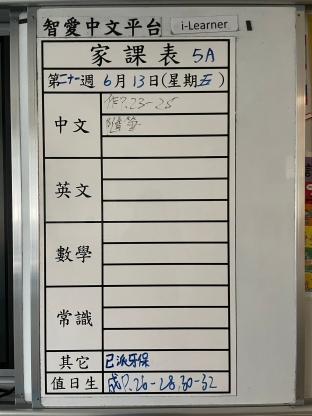 智愛中文平台 i-Learner
家課表 5A
第二十一週 6月13日(星期五)
中文 作P.23-25
隨筆
英文
數學
常識
其它 已派牙保
值日生 成P.26-28,30-32